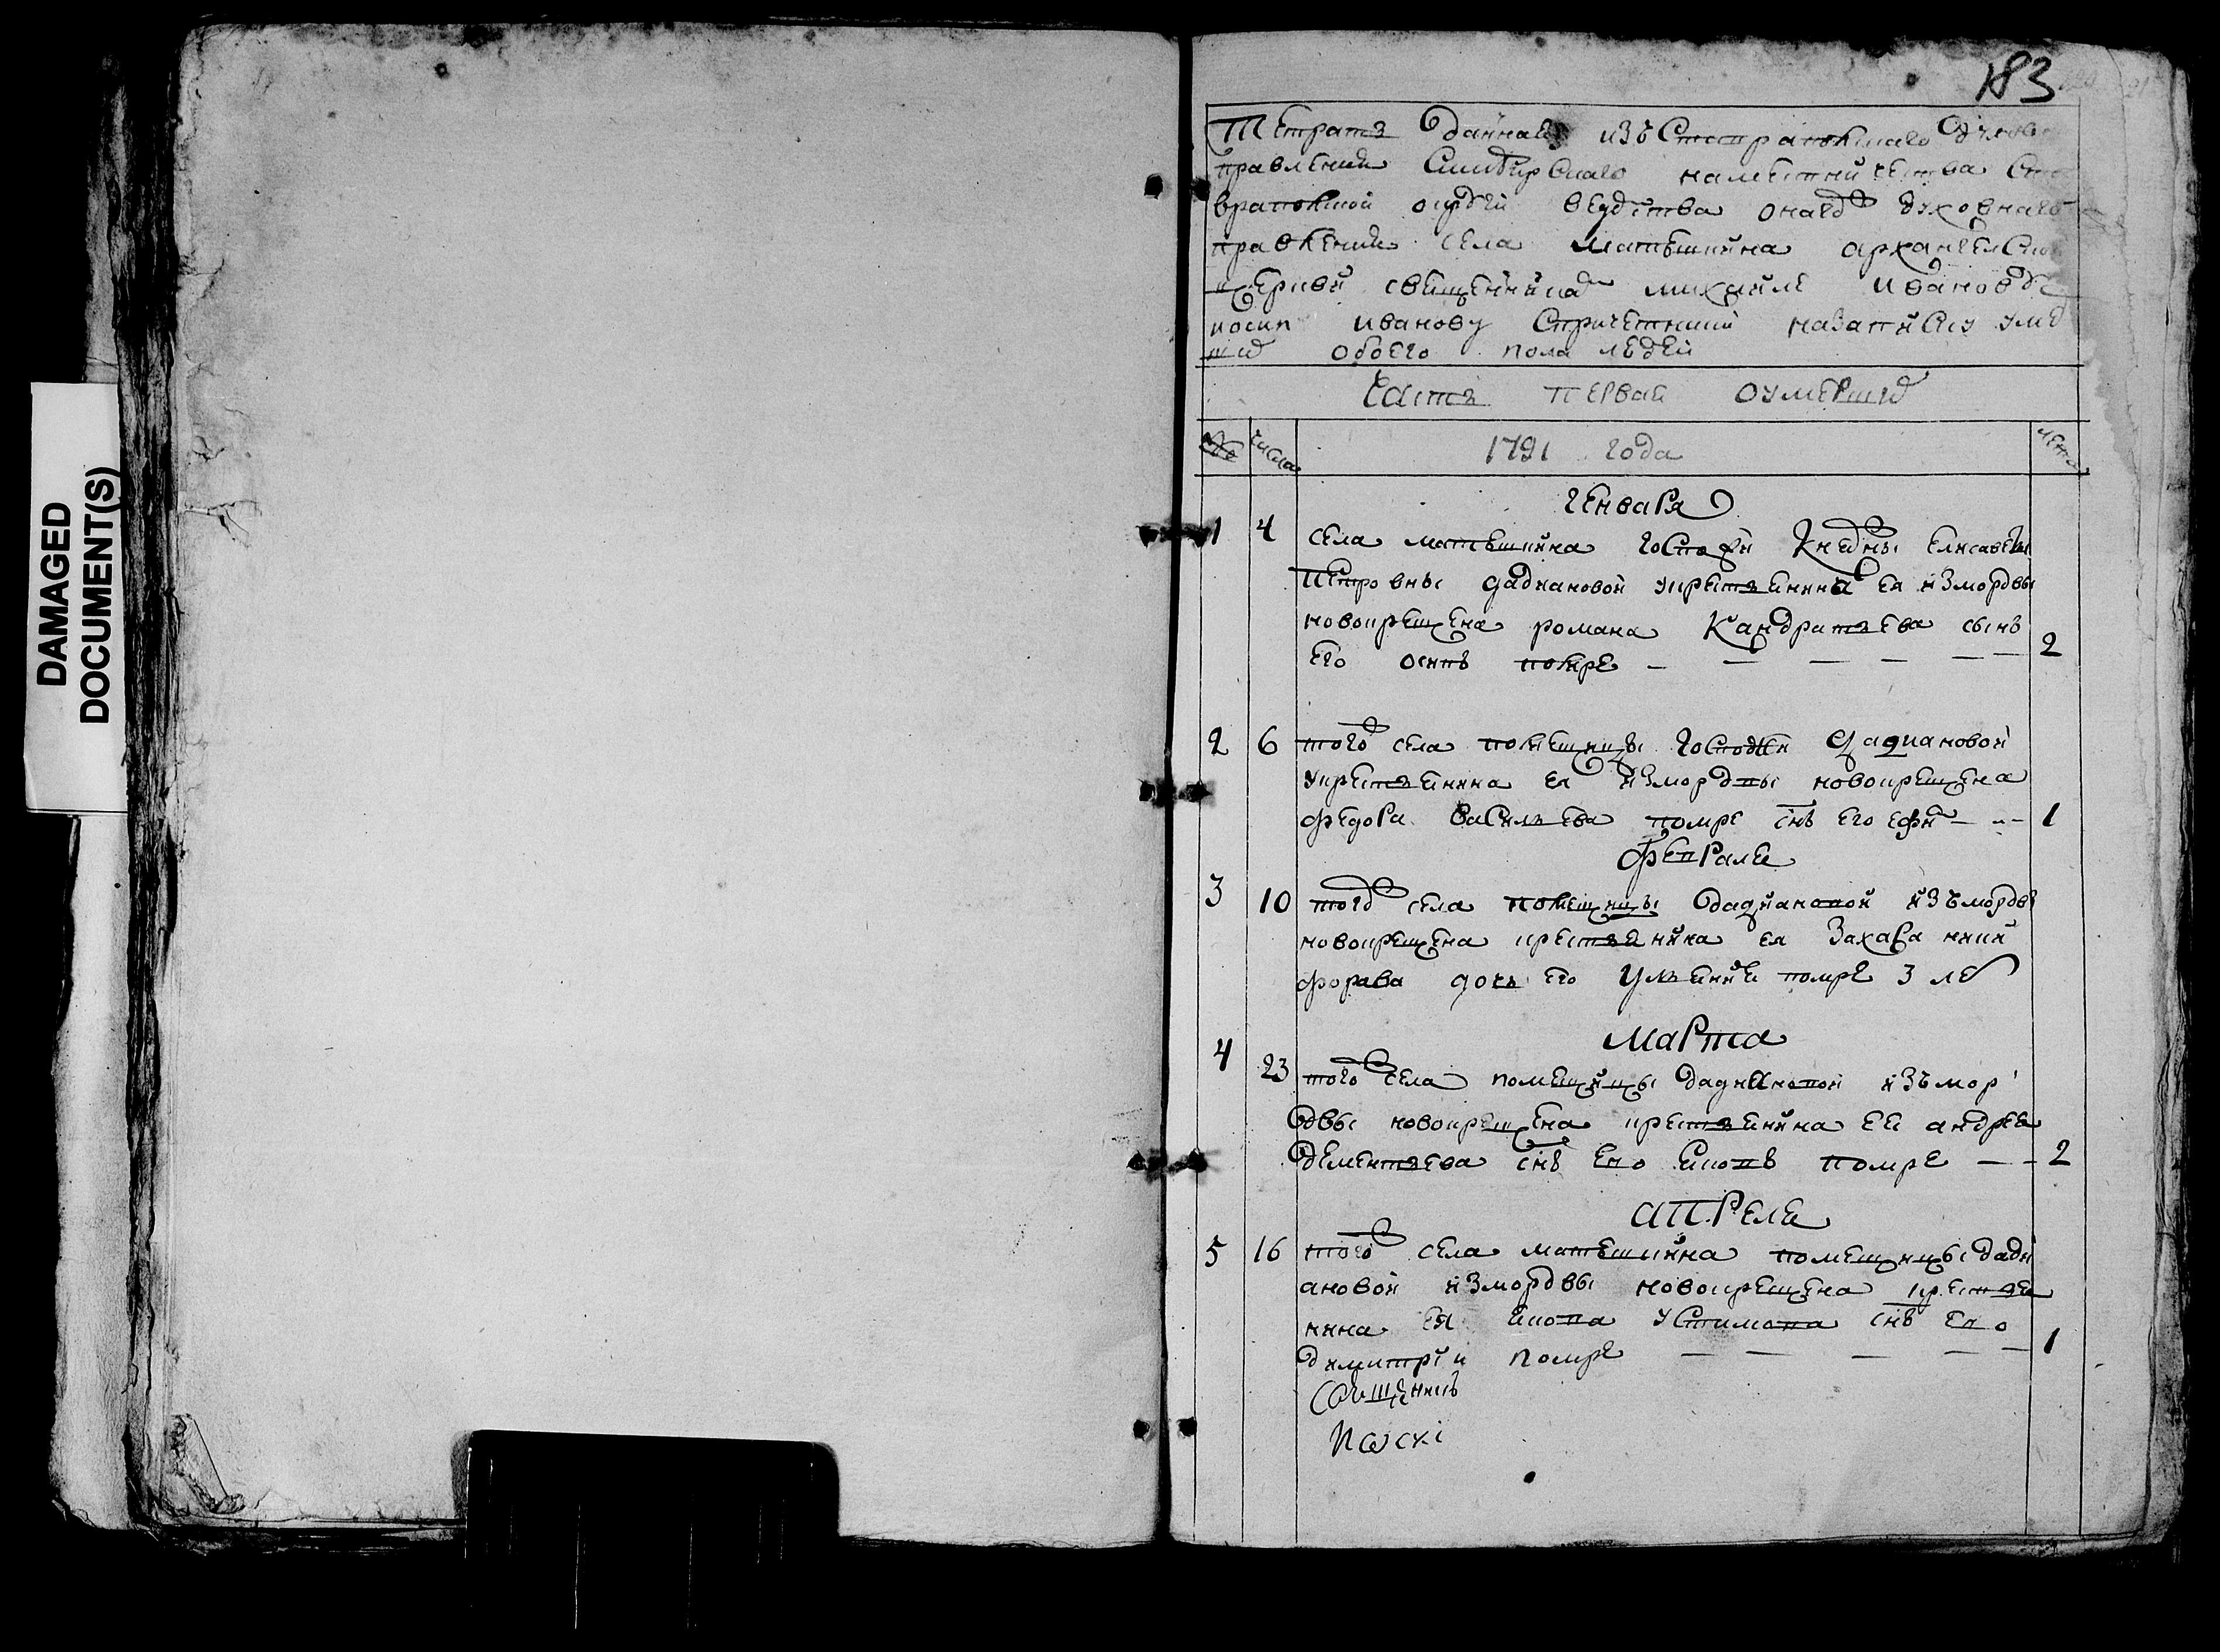 183
Тетрать данная изъ Ставрапольскаго духов
правления Синбирскаго наместничества Ста
врапольской округи ведомства онаго духовнаго
правления села Матюшкина архангелской
церкви священника михаиле иванове
иосип иванову спричетники назаписку умер
ших обоего пола людей
Часть первая оумерших
№ числа 1791 года лета
Генваря
1 4 села матюшкина госпожи Княгины Елисаветы
Петровны дадиановой укрестьянина ея измордвы
новокрещена романа Кандратьева сынъ
его осипъ помре 2
2 6 того села помещицы госпожи дадиановой
укрестьянина ея измордвы новокрещена
федора васильева помре снъ его ефи 1
февраля
3 10 того села помещицы дадиановой изъмордвы
новокрещена крестьянина ея Захара ники
форава дочь его Ульяния помре 3 ле
Марта
4 23 того села помещицы дадиановой изъмор
двы новокрещена крестьянина ея андрея
дементьева снъ его яковъ помре 2
апреля
5 16 того села матюшкина помещицы дади
ановой измордвы новокрещена крестья
нина ея якова Устимова снъ его
димитрии помре 1
Священникъ
DAMAGED
DOCUMENT(S)